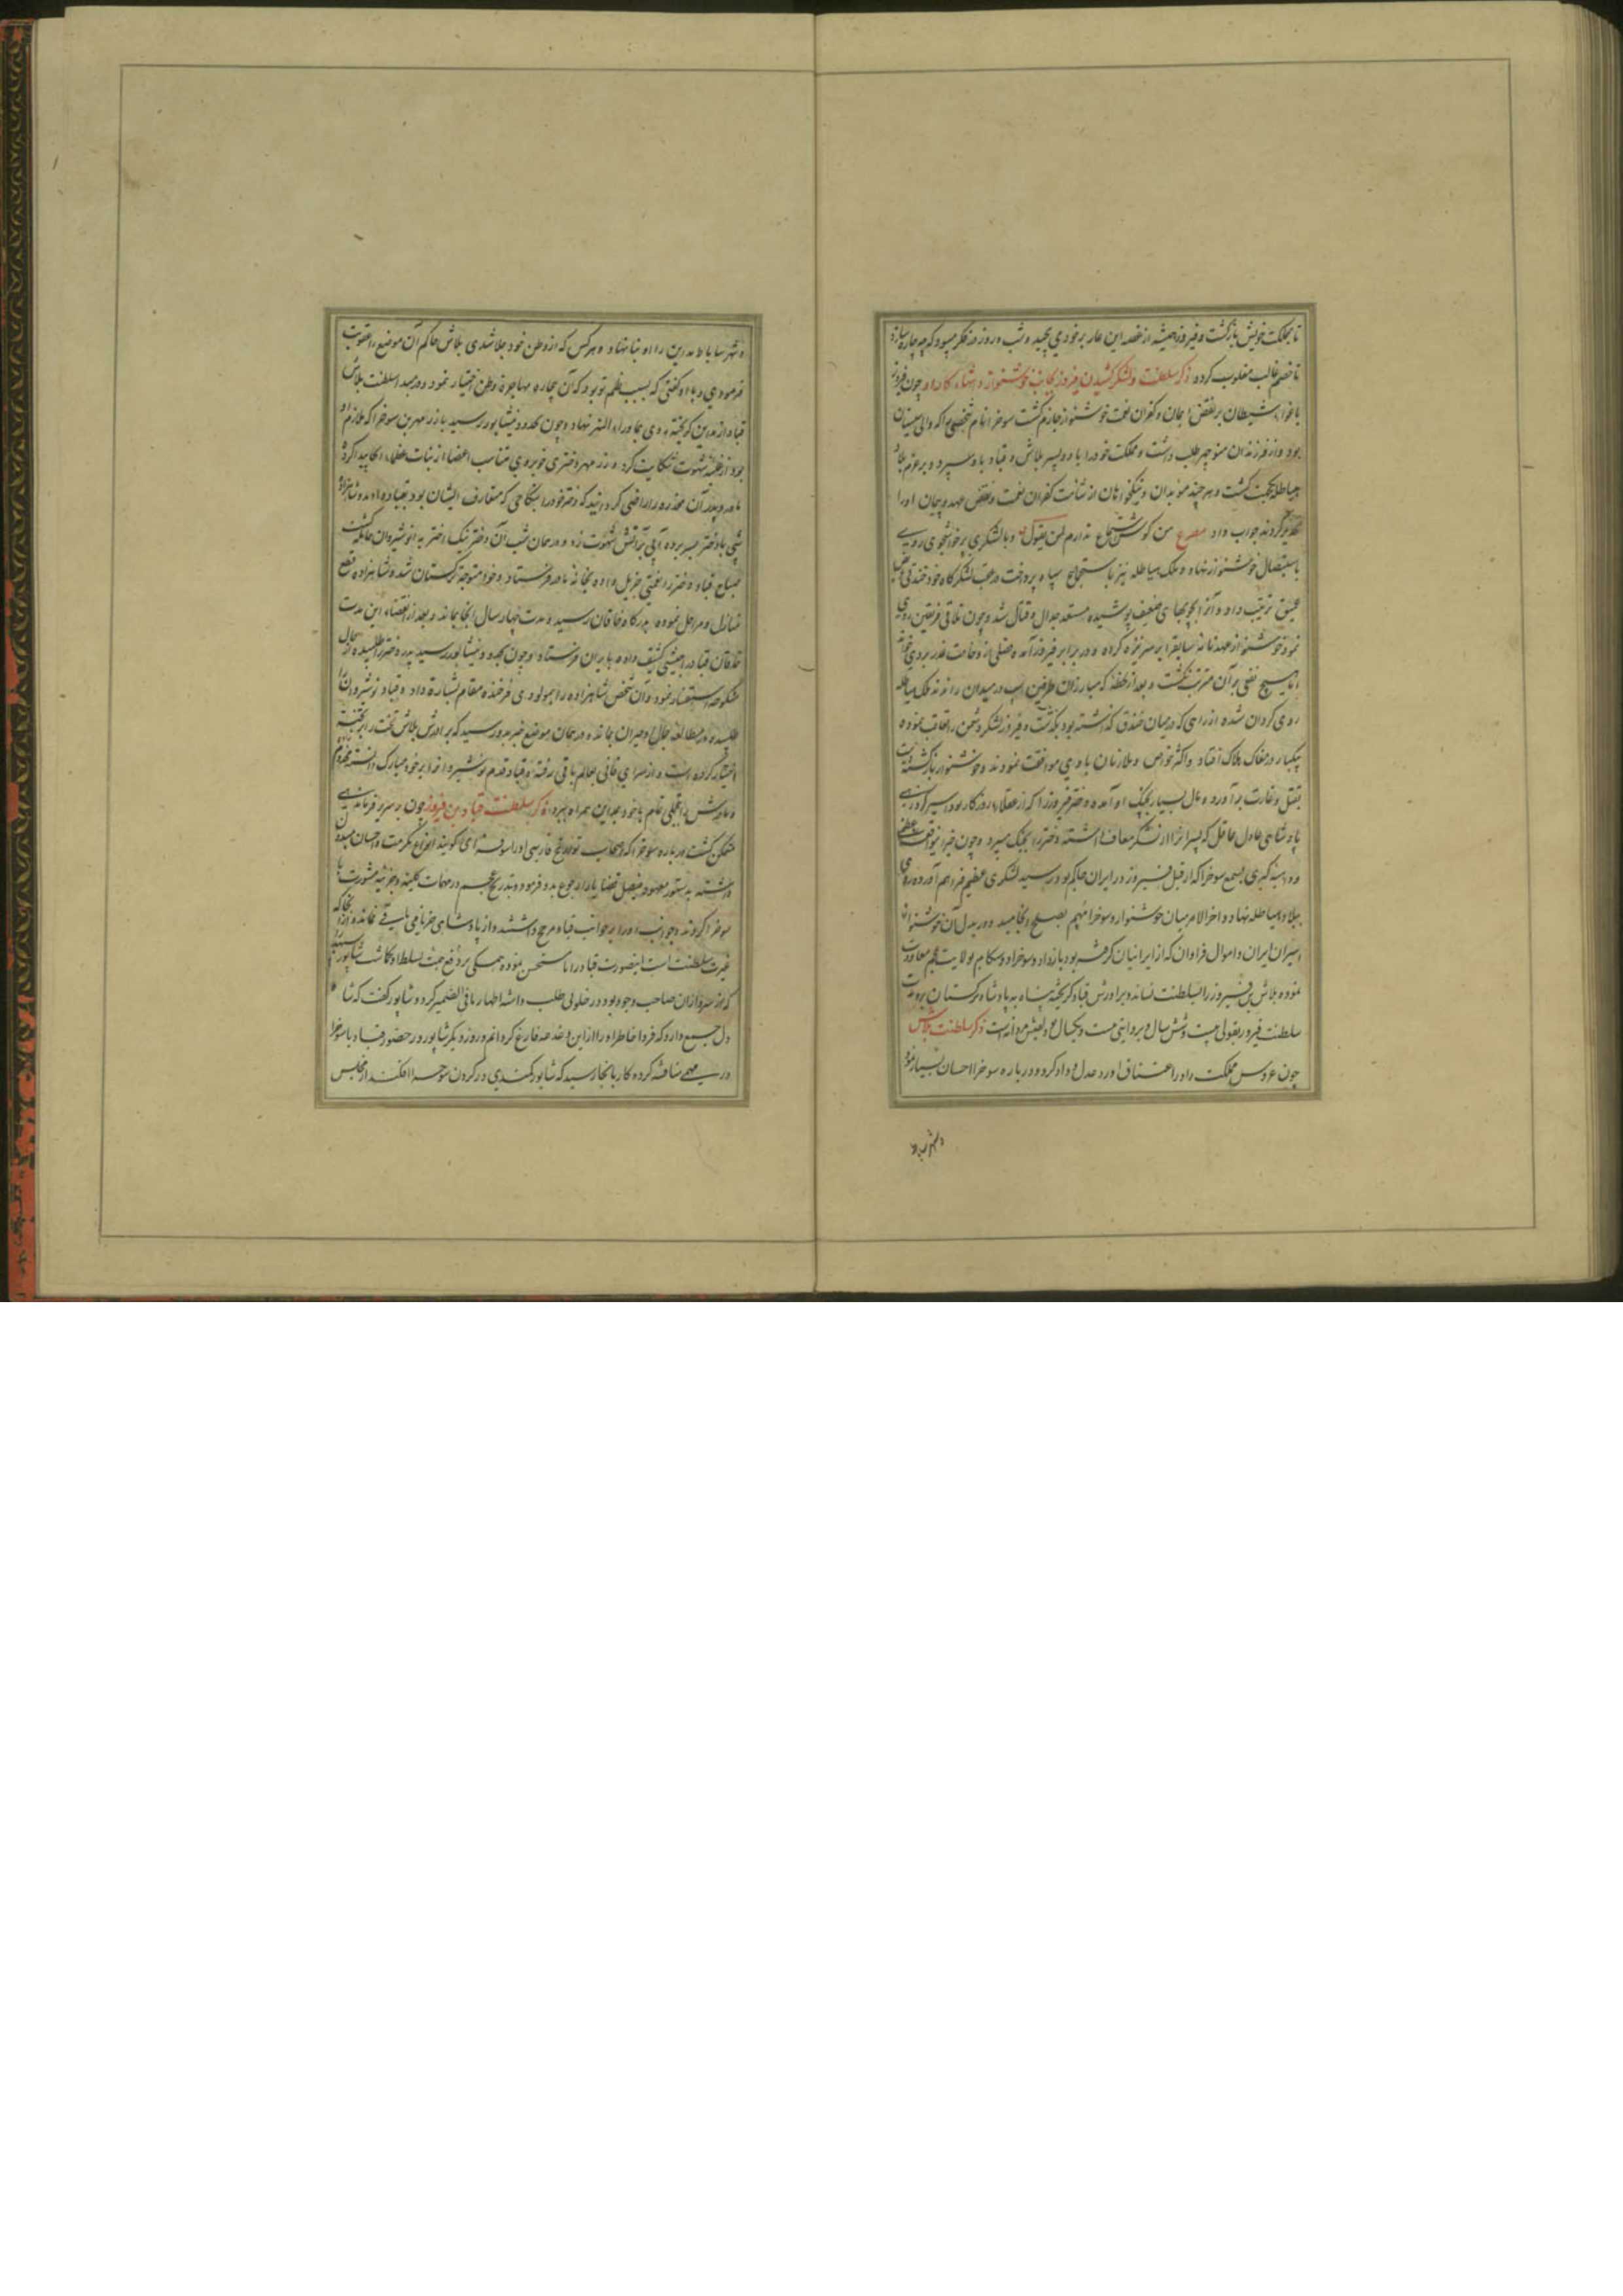 تا بمملکت خویش بازگشت و فیروز همیشه از غصه این عار بر خود می پیچید و شب و روز در فکر میبود که چه چاره سازد
تا خصم غالب مغلوب کردد ذکر سلطنت و لشکر کشیدن فیروز بجانب خوشنواز و انتهاء کار او چون فیروز
باغواء شیطان بر نقض پیمان و کفران نعمت خوشنواز جازم گشت سوخرا نام شخصی را که والی سیستان
بود و از فرزندان منوچهر طلب داشت و مملکت خود را با دو پسر بلاش و قباد باو سپرد و بر عزم بلاد
هیاطله نهضت گشت و هر چند موبدان و نیکخواهان از شآمت کفران نعمت و نقض عهد و پیمان او را
تحذیر کردند جواب داد مصرع من گوش استماع ندارم لمن یقول و با لشکری پرخاشجوی روی
باستیصال خوشنواز نهاد و ملک هیاطله نیز باستجماع سپاه پرداخت در عقب لشکرگاه خود خندقی
عمیق ترتیب داد و آنرا بچوبهای ضعیف پوشیده مستعد جدال و قتال شد و چون تلاقی فریقین روی
نمود خوشنواز عهدنامه سابق را بر سر نیزه کرده در برابر فیروز آمد و فصلی از وخامت غدر بروی خواند
اما هیچ نفعی بر آن مترتب نگشت و بعد از لحظه که مبارزان طرفین اسب در میدان راندند ملک هیاطله
روی گردان شده از راهی که در میان خندق گذاشته بود بگذشت و فیروز لشکر دشمن را تعاقب نموده
بیکبار در مغاک هلاک افتاد و اکثر خواص و ملازمان با وی موافقت نمودند و خوشنواز بازگشته دست
بقتل و غارت برآورد و مال بسیار بچنگ او آمده دختر فیروز را که از عقلاء روزگار بود اسیر کرد
پادشاهی عادل عاقل که پسر را از لشکر معاف داشته دختر را بجنگ میبرد و چون خبر این واقعه عظمی
و داهیه کبری بسمع سوخرا که از قبل فیروز در ایران حاکم بود رسید لشکری عظیم فراهم آورده روی
ببلاد هیاطله نهاد و آخر الامر میان خوشنواز و سوخرا مهم بصلح انجامید و در بدل آن خوشنواز
اسیران ایران و اموال فراوان که از ایرانیان گرفته بود باز داد و سوخرا دوستکام بولایت عجم معاودت
نموده بلاش بن فیروز را بسلطنت نشاند و برادرش قباد گریخته پناه به پادشاه ترکستان برد مدت
سلطنت فیروز بقولی بیست و شش سال و بروایتی بیست و یکسال بود لقبش مردانه است ذکر سلطنت بلاش
چون عروس مملکت را در اعتناق آورد عدل و داد کرده و درباره سوخرا احسان بسیار نموده
و شهر ساباط مداین را او بنا نهاد و هر کس که از وطن خود جلا شدی بلاش حاکم آن موضع را عقوبت
فرمودی و باو گفتی که بسبب ظلم تو بود که آن بیچاره مهاجرت وطن اختیار نمود و در مبدء سلطنت بلاش
قباد از مداین گریخته روی بماوراء النهر نهاد و چون بحدود نیشابور رسید با زرمهر بن سوخرا که ملازم او
بود از غلبه شهوت شکایت کرد و زرمهر دختری خوبروی متناسب اعضا از بنات عظماء آنجا پیدا کرده
مادر و پدر آن مخدره را راضی گردانید که دختر خود را بنکاحی که متعارف ایشان بود بقباد دادند و شاهزاده
شبی با دختر بسر برده آبی بر آتش شهوت زد و در همان شب آن دختر نیک اختر به انوشیروان حامله گشت
صباح قباد دختر را نعمتی جزیل داده بخانه مادر فرستاد و خود متوجه ترکستان شد و شاهزاده قطع
منازل و مراحل نموده بدرگاه خاقان رسید و مدت چهار سال آنجا بماند و بعد از انقضاء این مدت
خاقان قباد را جیشی کثیف داده بایران فرستاد و چون بحدود نیشابور رسید پدر دختر را طلبیده از حال
منکوحه استفسار نمود و آن شخص شاهزاده را بمولودی فرخنده مقام بشارت داد و قباد نوشیروان را
طلبیده در مطالعه جمال او حیران بماند و در همان موضع خبر بدو رسید که برادرش بلاش تخت را بر تخته
اختیار کرده است و از سرای فانی بعالم باقی رفته و قباد قدم نوشیروان را بر خود مبارک دانسته
و مادرش را بتجملی تمام با خود بمداین همراه ببرد ذکر سلطنت قباد بن فیروز چون بر سریر فرماندهی
متمکن گشت درباره سوخرا که اصحاب تواریخ فارسی او را سوفرای گویند انواع مکرمت و احسان مبذول
داشته بدستور معهود فیصل قضایا را رجوع بدو فرمود و بتدریج عجم در مهمات کلیه و جزئیه مشورت با
سوخرا کردند و جوانب او را بر جوانب قباد مرجح داشتند و از پادشاهی جز نامی باقی نماند و از آنجا که
غیرت سلطنت است اینصورت قباد را نامستحسن نموده همگی بر دفع جبت تسلط او گماشت شاپور
که از سرداران صاحب وجود بود در خلوتی طلب داشته اظهار مافی الضمیر کرد و شاپور گفت که شاه
دل جمع دارد که فردا خاطر او را از این دغدغه فارغ گردانم و روز دیگر شاپور در حضور قباد با سوخرا
در مهمی مناقشه کرده کار بانجا رسید که شاپور کمندی در گردن سوخرا افکند از مجلس